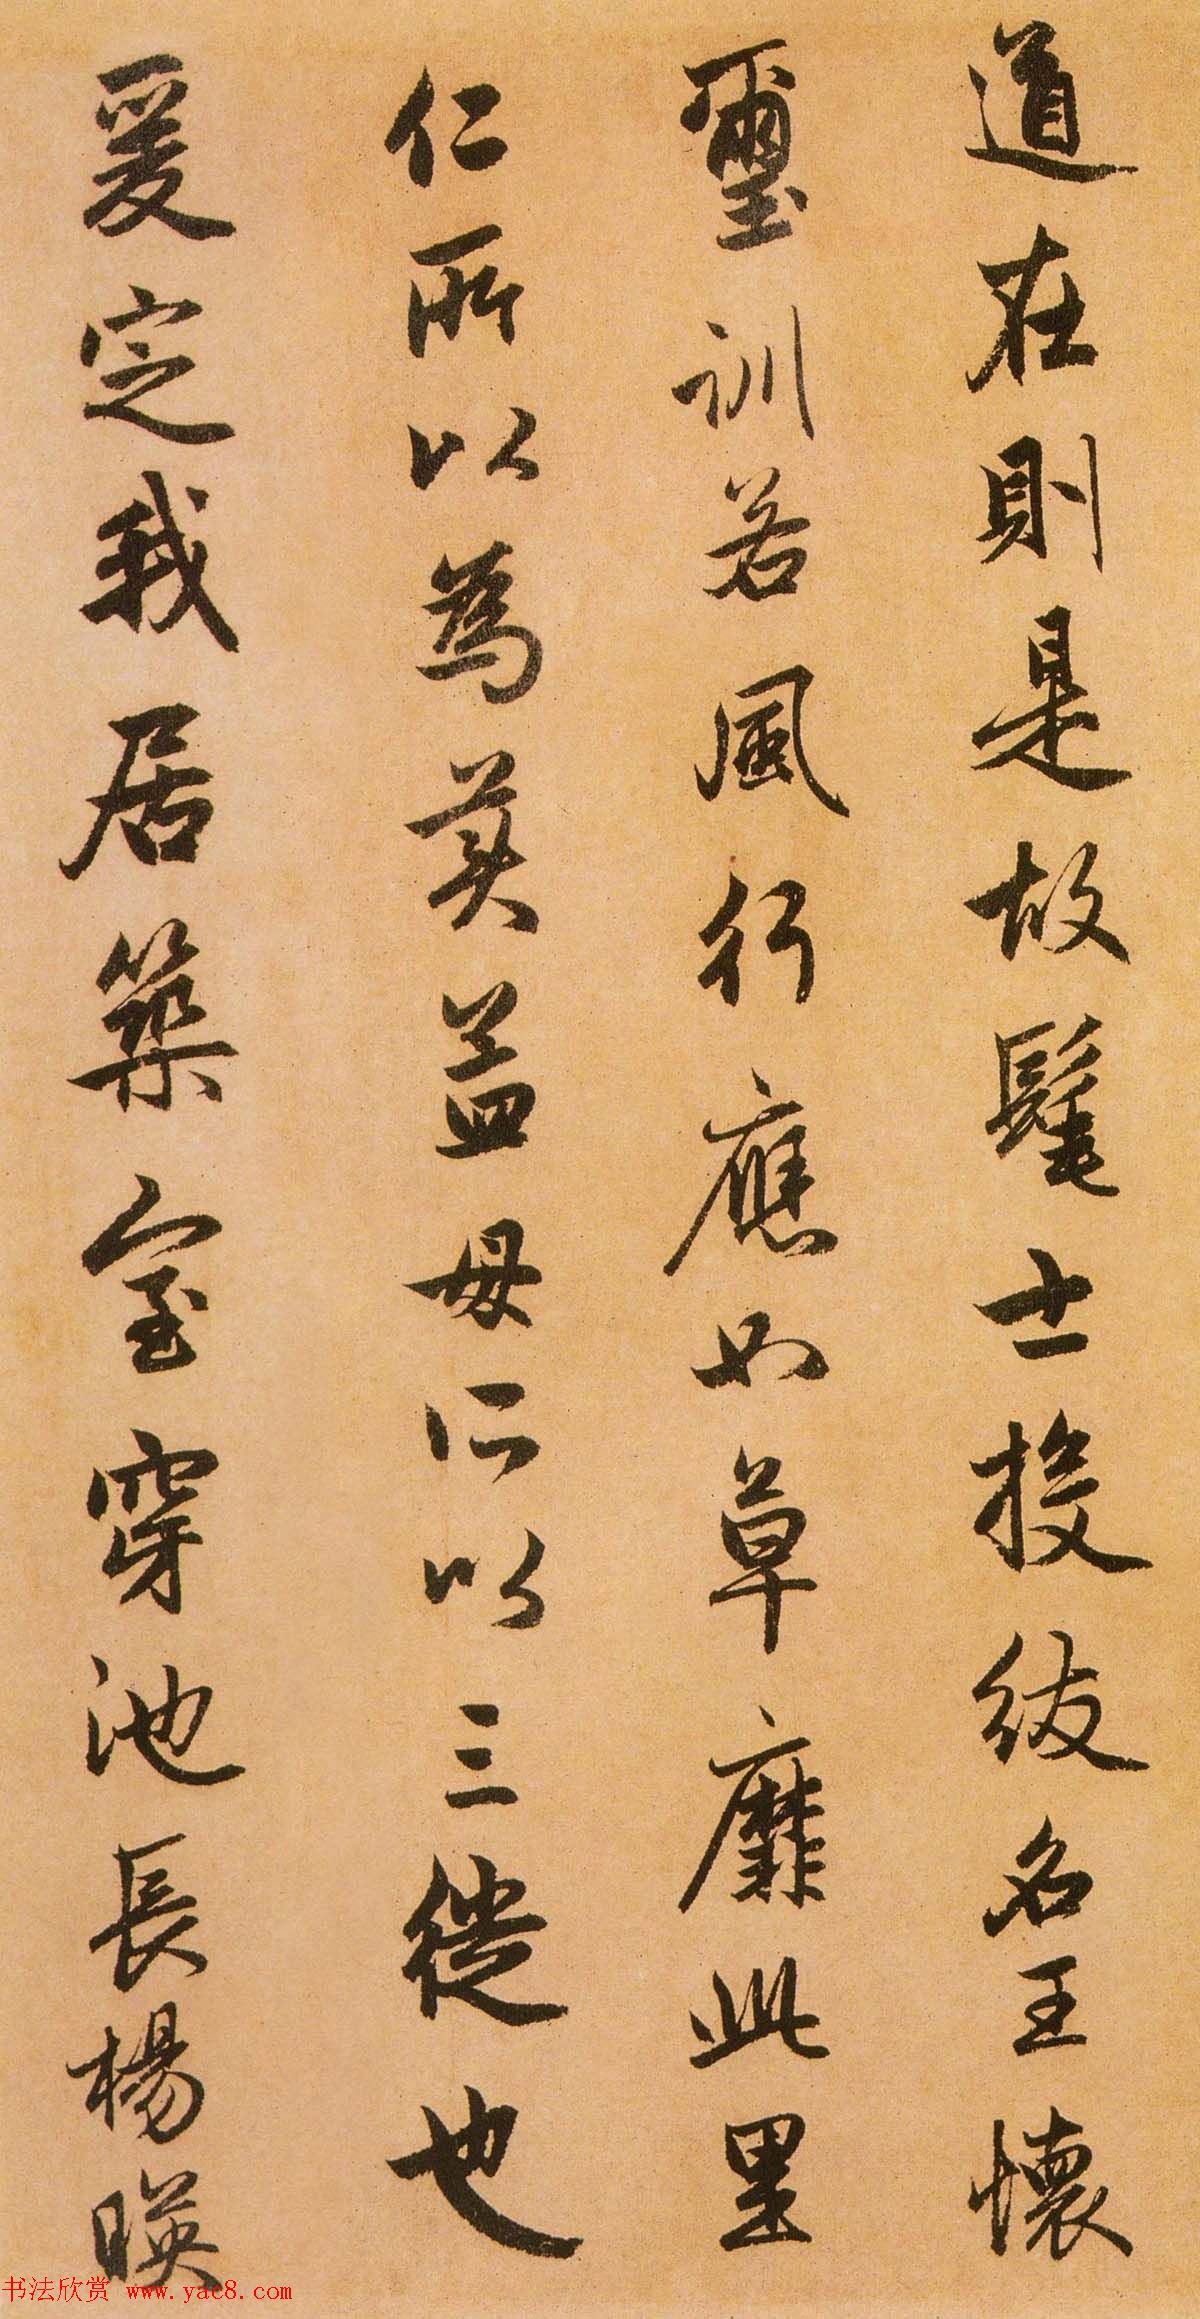 道在則是故髦士投紱名王懷
璽訓若風行應如草靡此里
仁所以為美益母所以三徙也
爰定我居築室穿池長楊映
书法欣赏 www.yac8.com